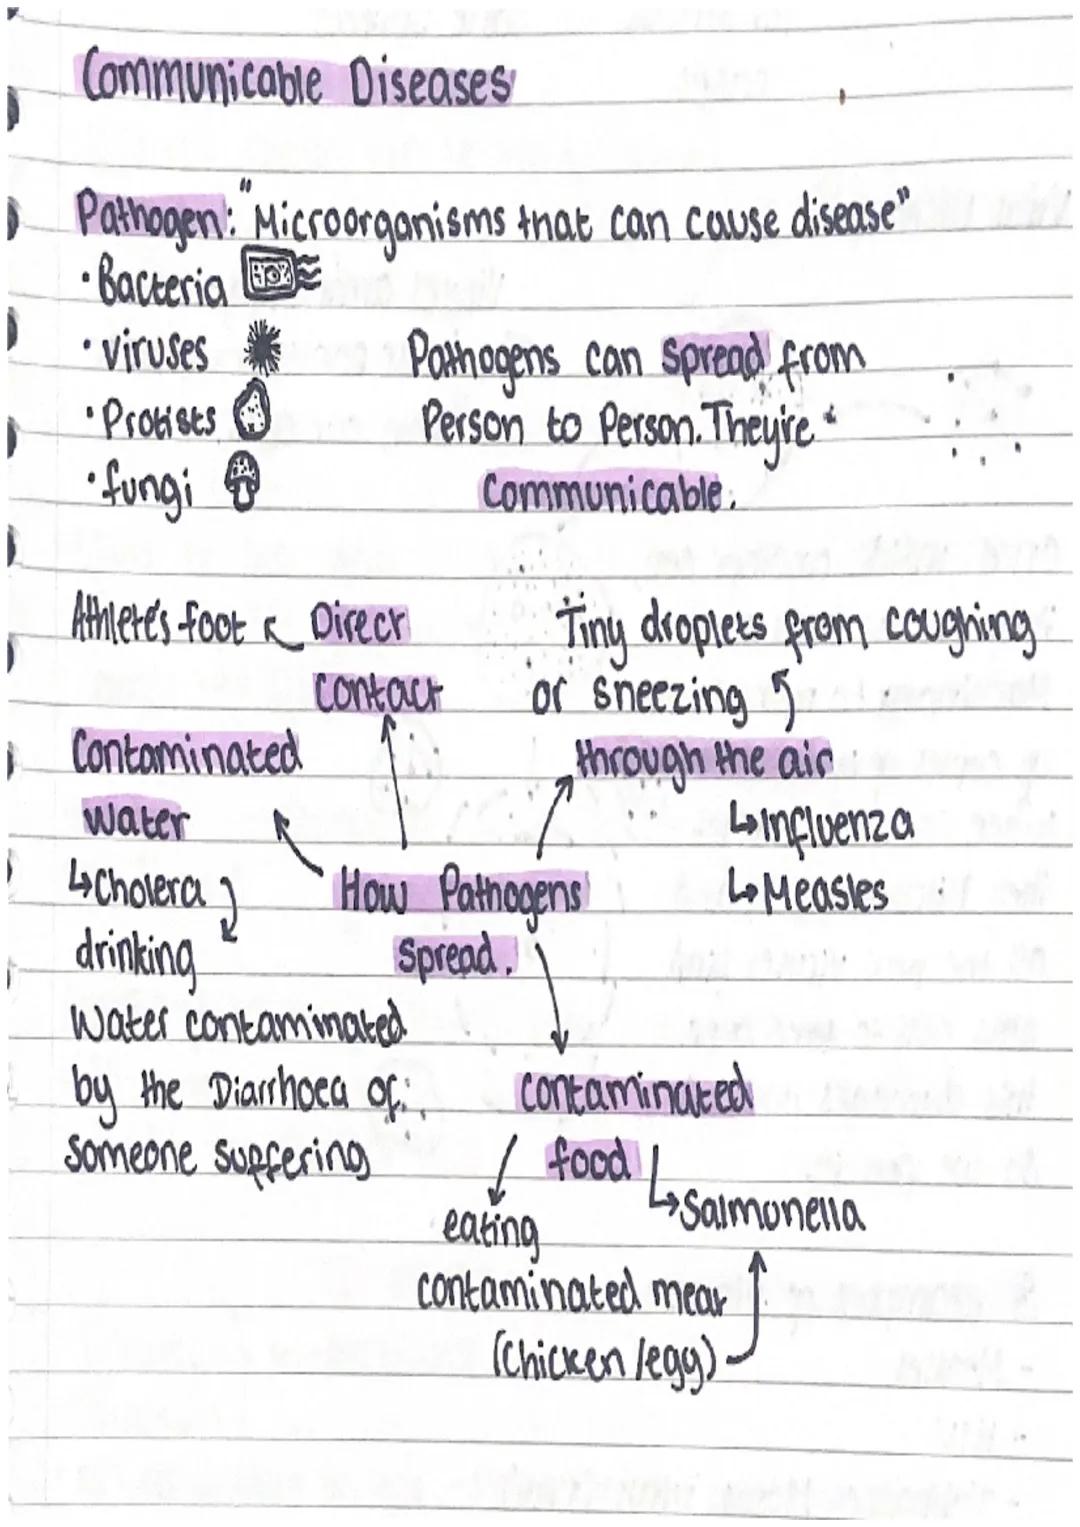 Communicable Diseases
Pathogen: "Microorganisms that can cause disease"
·Bacteria
·viruses
·Protists
·fungi
Pathogens can spread from
Person to Person. They're
Communicable.
Athlete's foot ↖ Direct
contact
Tiny droplets from coughing
or sneezing
through the air
↳Influenza
↳Measles
Contaminated
water
↳Cholera
drinking
water contaminated
by the Diarrhoea of
someone suffering
How Pathogens
Spread.
contaminated
food
↳Salmonella
eating
contaminated meat
(Chicken/egg)